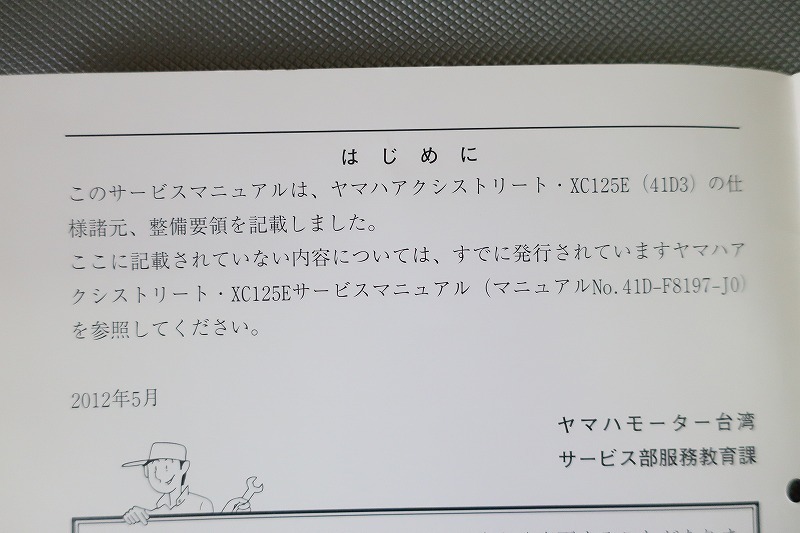 はじめに
このサービスマニュアルは、ヤマハアクシストリート・XC125E（41D3）の仕
様諸元、整備要領を記載しました。
ここに記載されていない内容については、すでに発行されていますヤマハア
クシストリート・XC125Eサービスマニュアル（マニュアルNo.41D-F8197-J0）
を参照してください。
2012年5月
ヤマハモーター台湾
サービス部服務教育課